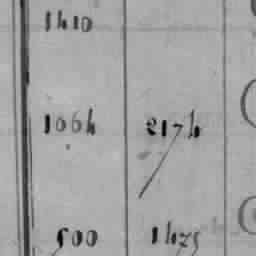 1410
1064 2174
500 1425